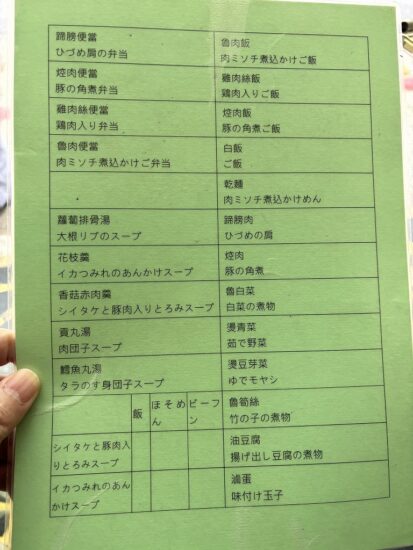 蹄膀便當
ひづめ肩の弁当
魯肉飯
肉ミソチ煮込かけご飯
焢肉便當
豚の角煮弁当
雞肉絲飯
鶏肉入りご飯
雞肉絲便當
鶏肉入り弁当
焢肉飯
豚の角煮ご飯
魯肉便當
肉ミソチ煮込かけご弁当
白飯
ご飯
乾麵
肉ミソチ煮込かけめん
蘿蔔排骨湯
大根リブのスープ
蹄膀肉
ひづめの肩
花枝羹
イカつみれのあんかけスープ
焢肉
豚の角煮
香菇赤肉羹
シイタケと豚肉入りとろみスープ
魯白菜
白菜の煮物
貢丸湯
肉団子スープ
燙青菜
茹で野菜
鱈魚丸湯
タラのすり身団子スープ
燙豆芽菜
ゆでモヤシ
飯
ほそめ
ん
ビーフ
ン
魯筍絲
竹の子の煮物
シイタケと豚肉入
りとろみスープ
油豆腐
揚げ出し豆腐の煮物
イカつみれのあん
かけスープ
滷蛋
味付け玉子